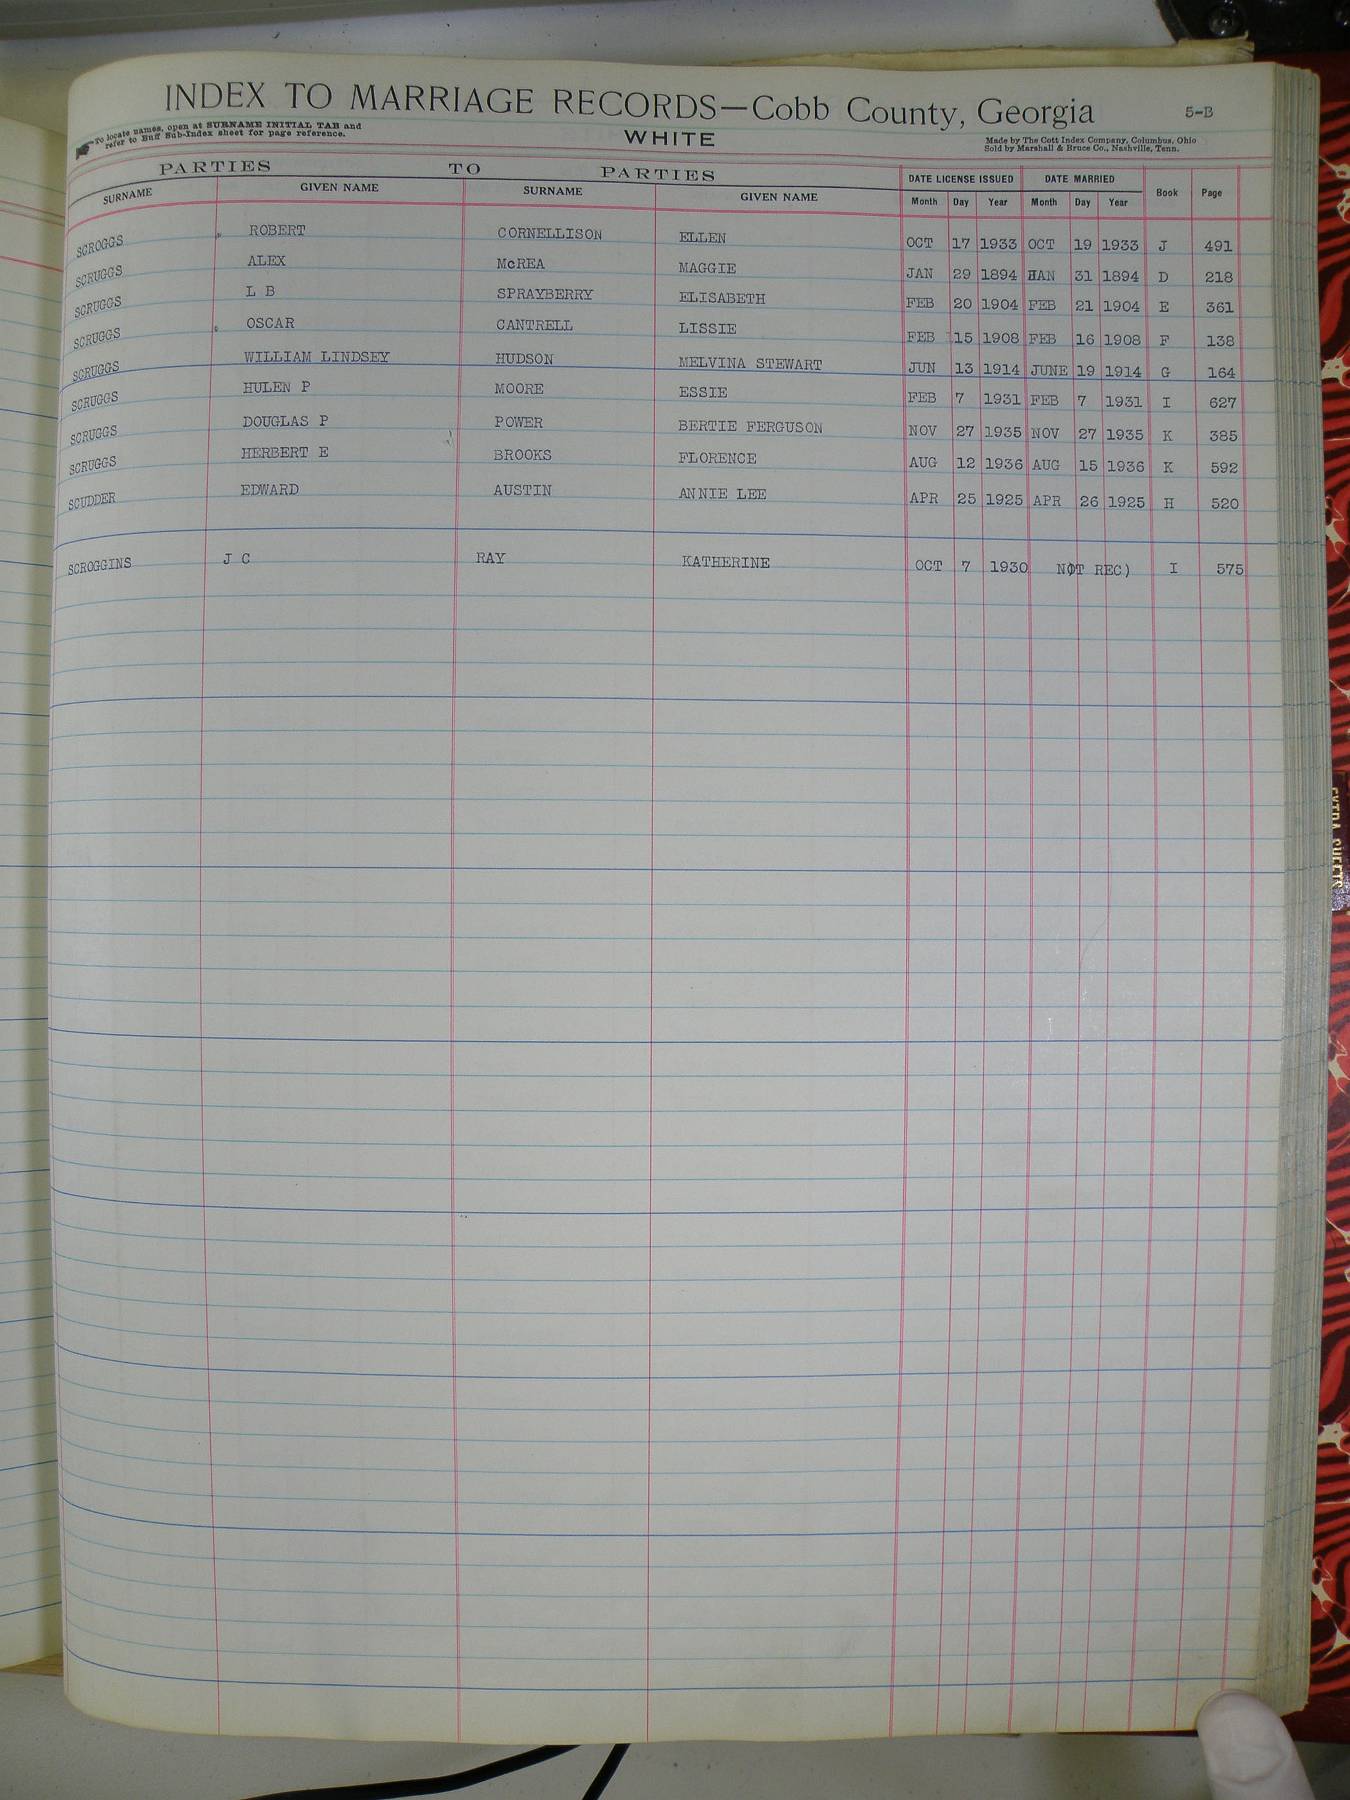 INDEX TO MARRIAGE RECORDS—Cobb County, Georgia 5-B
To locate names, open at SURNAME INITIAL TAB and
refer to Buff Sub-Index sheet for page reference.
WHITE
Made by The Cott Index Company, Columbus, Ohio
Sold by Marshall & Bruce Co., Nashville, Tenn.
PARTIES TO PARTIES DATE LICENSE ISSUED DATE MARRIED Book Page
SURNAME GIVEN NAME SURNAME GIVEN NAME Month Day Year Month Day Year
SCROGGS ROBERT CORNELLISON ELLEN OCT 17 1933 OCT 19 1933 J 491
SCRUGGS ALEX McREA MAGGIE JAN 29 1894 HAN 31 1894 D 218
SCRUGGS L B SPRAYBERRY ELISABETH FEB 20 1904 FEB 21 1904 E 361
SCRUGGS OSCAR CANTRELL LISSIE FEB 15 1908 FEB 16 1908 F 138
SCRUGGS WILLIAM LINDSEY HUDSON MELVINA STEWART JUN 13 1914 JUNE 19 1914 G 164
SCRUGGS HULEN P MOORE ESSIE FEB 7 1931 FEB 7 1931 I 627
SCRUGGS DOUGLAS P POWER BERTIE FERGUSON NOV 27 1935 NOV 27 1935 K 385
SCRUGGS HERBERT E BROOKS FLORENCE AUG 12 1936 AUG 15 1936 K 592
SCUDDER EDWARD AUSTIN ANNIE LEE APR 25 1925 APR 26 1925 H 520
SCROGGINS J C RAY KATHERINE OCT 7 1930 NOT REC) I 575
EXTRA SHEETS